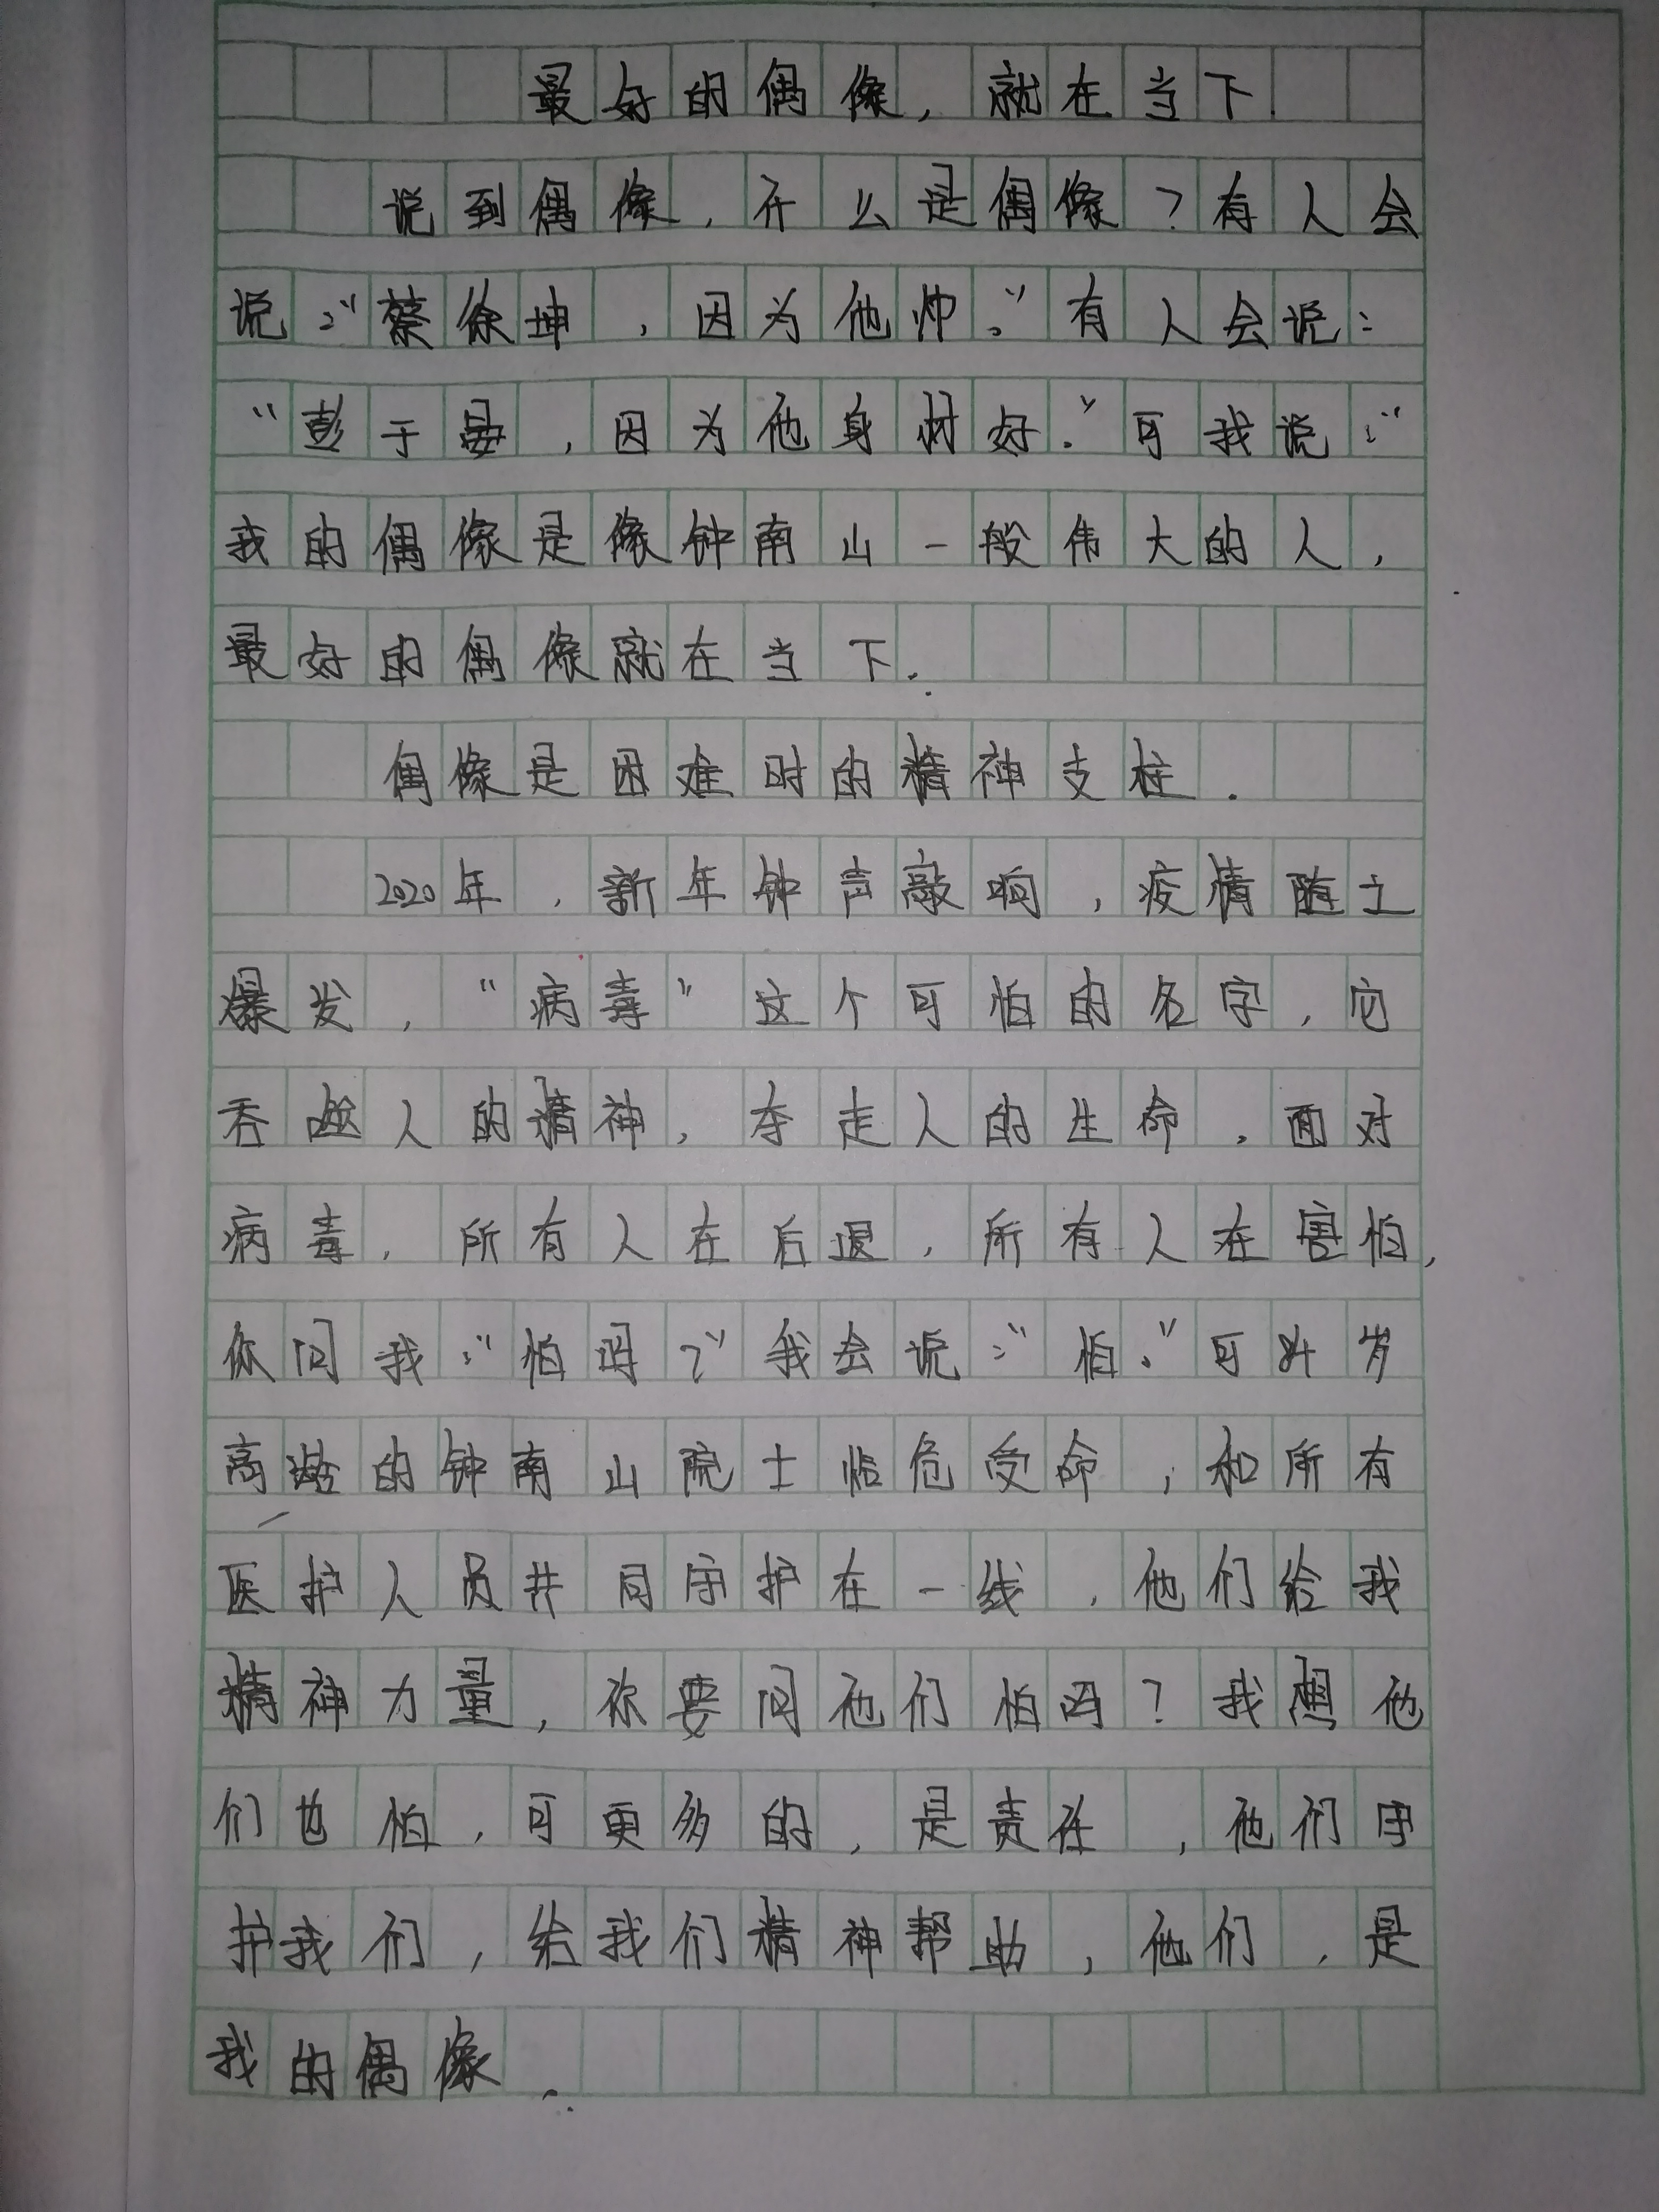 最好的偶像，就在当下
说到偶像，什么是偶像？有人会
说：“蔡徐坤，因为他帅。”有人会说：
“彭于晏，因为他身材好。”可我说：“
我的偶像是像钟南山一般伟大的人，
最好的偶像就在当下.
偶像是困难时的精神支柱.
2020年，新年钟声敲响，疫情随之
爆发，“病毒”这个可怕的名字，它
吞噬人的精神，夺走人的生命，面对
病毒，所有人在后退，所有人在害怕，
你问我：“怕吗？”我会说：“怕。”可84岁
高龄的钟南山院士临危受命，和所有
医护人员共同守护在一线，他们给我
精神力量，你要问他们怕吗？我想他
们也怕，可更多的，是责任，他们守
护我们，给我们精神帮助，他们，是
我的偶像.